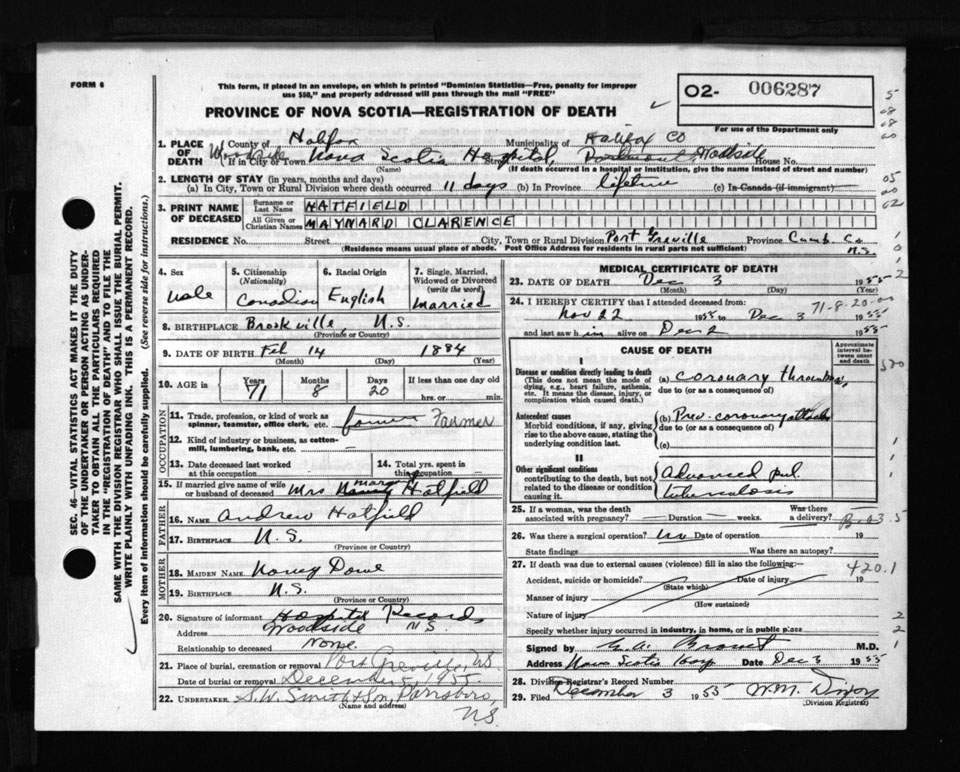 FORM 6
This form, if placed in an envelope, on which is printed "Dominion Statistics—Free, penalty for improper
use $50," and properly addressed will pass through the mail "FREE"
PROVINCE OF NOVA SCOTIA—REGISTRATION OF DEATH
O2- 006287
For use of the Department only
1. PLACE OF DEATH
County of Halifax Municipality of Halifax Co
Woodside
If in City or Town Nova Scotia Hospital, Street Woodside House No.
(Name) (If death occurred in a hospital or institution, give the name instead of street and number)
2. LENGTH OF STAY (in years, months and days)
(a) In City, Town or Rural Division where death occurred 11 days (b) In Province lifetime (c) In Canada (if immigrant)
3. PRINT NAME OF DECEASED
Surname or Last Name HATFIELD
All Given or Christian Names MAYNARD CLARENCE
RESIDENCE No. Street City, Town or Rural Division Port Greville Province Cumb. Co. N.S.
(Residence means usual place of abode. Post Office Address for residents in rural parts not sufficient)
4. Sex Male
5. Citizenship (Nationality) Canadian
6. Racial Origin English
7. Single, Married, Widowed or Divorced (write the word) Married
8. BIRTHPLACE Brookville N.S.
(Province or Country)
9. DATE OF BIRTH Feb 14 1884
(Month) (Day) (Year)
10. AGE in Years 71 Months 8 Days 20 If less than one day old
hrs. or min.
OCCUPATION
11. Trade, profession, or kind of work as spinner, teamster, office clerk, etc. farmer Farmer
12. Kind of industry or business, as cotton-mill, lumbering, bank, etc.
13. Date deceased last worked at this occupation
14. Total yrs. spent in this occupation
15. If married give name of wife or husband of deceased Mrs Nancy Hatfield
FATHER
16. NAME Andrew Hatfield
17. BIRTHPLACE N.S.
(Province or Country)
MOTHER
18. MAIDEN NAME Nancy Dowe
19. BIRTHPLACE N.S.
(Province or Country)
20. Signature of informant Hospital Records
Address Woodside N.S.
Relationship to deceased none.
21. Place of burial, cremation or removal Port Greville, N.S.
Date of burial or removal December 5, 1955
22. UNDERTAKER S.W. Smith & Son, Parrsboro,
(Name and address)
N.S.
MEDICAL CERTIFICATE OF DEATH
23. DATE OF DEATH Dec 3 1955
(Month) (Day) (Year)
24. I HEREBY CERTIFY that I attended deceased from:
71-8-20
Nov 22 1955 to Dec 3 1955
and last saw him alive on Dec 2 1955
CAUSE OF DEATH
Approximate interval between onset and death
I
Disease or condition directly leading to death
(This does not mean the mode of dying, e.g., heart failure, asthenia, etc. It means the disease, injury, or complication which caused death.)
(a) coronary thrombosis,
due to (or as a consequence of)
Antecedent causes
Morbid conditions, if any, giving rise to the above cause, stating the underlying condition last.
(b) Prev. coronary attacks
due to (or as a consequence of)
(c)
II
Other significant conditions
contributing to the death, but not related to the disease or condition causing it.
Advanced pul.
tuberculosis
25. If a woman, was the death associated with pregnancy? Duration weeks. Was there a delivery?
26. Was there a surgical operation? no Date of operation 19
State findings Was there an autopsy?
27. If death was due to external causes (violence) fill in also the following:
420.1
Accident, suicide or homicide? Date of injury 19
(State which)
Manner of injury
(How sustained)
Nature of injury
Specify whether injury occurred in industry, in home, or in public place
Signed by M.D.
Address Nova Scotia Hosp Date Dec 3 1955
28. Division Registrar's Record Number
29. Filed December 3 1955 W.M. Dixon
(Division Registrar)
SEC. 46—VITAL STATISTICS ACT MAKES IT THE DUTY
OF THE UNDERTAKER OR PERSON ACTING AS UNDERTAKER TO OBTAIN ALL THE PARTICULARS REQUIRED
IN THE "REGISTRATION OF DEATH" AND TO FILE THE
SAME WITH THE DIVISION REGISTRAR WHO SHALL ISSUE THE BURIAL PERMIT.
WRITE PLAINLY WITH UNFADING INK. THIS IS A PERMANENT RECORD.
Every item of information should be carefully supplied. (See reverse side for instructions.)